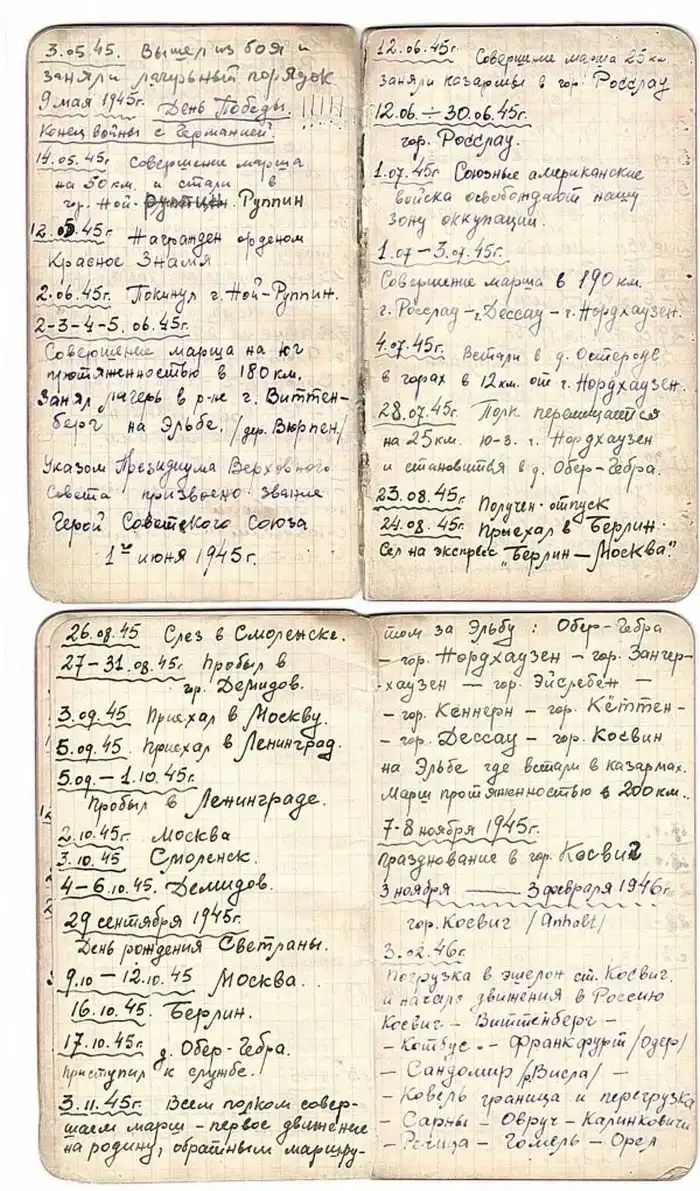 3.05.45. Вышел из боя и
заняли лагерный порядок
9 мая 1945г. День Победы. !!!!!
Конец войны с Германией!
14.05.45г. Совершение марша
на 50 км. и стали в
гор. Ной- Руппин
12.05.45г. Награжден орденом
Красное Знамя
2.06.45г. Покинул г. Ной-Руппин.
2-3-4-5. 06.45г.
Совершение марша на юг
протяженностью в 180 км.
Занял лагерь в р-не г. Виттен-
берг на Эльбе. /дер. Вюрпен/
Указом Президиума Верховного
Совета присвоено звание
Герой Советского Союза
1го июня 1945г.
12.06.45г. Совершение марша 25 км
заняли казармы в гор. Росслау
12.06 ÷ 30.06.45г.
гор. Росслау.
1.07.45г Союзные американские
войска освобождают нашу
зону оккупации.
1.07 – 3.07.45г.
Совершение марша в 190 км.
г. Росслау – г. Дессау – г. Нордхаузен.
4.07.45г. Встали в д. Остероде
в горах в 12 км. от г. Нордхаузен.
28.07.45г. Полк перемещается
на 25 км. ю-з. г. Нордхаузен
и становится в д. Обер-Гебра.
23.08.45г. Получен отпуск
24.08.45г. Приехал в Берлин.
Сел на экспресс „Берлин – Москва"
26.08.45 Слез в Смоленске.
27–31.08.45г. Пробыл в
гор. Демидов.
3.09.45 Приехал в Москву.
5.09.45. Приехал в Ленинград.
5.09. – 1.10.45г.
Пробыл в Ленинграде.
2.10.45г. Москва
3.10.45 Смоленск.
4–6.10.45. Демидов.
29 сентября 1945г.
День рождения Светланы.
9.10 – 12.10.45 Москва.
16.10.45. Берлин.
17.10.45г. д. Обер-Гебра.
Приступил к службе.
3.11.45г. Всем полком совер-
шаем марш – первое движение
на родину, обратным маршру-
том за Эльбу : Обер-Гебра
– гор. Нордхаузен – гор. Зангер-
-хаузен – гор. Эйслебен –
– гор. Кеннерн – гор. Кёттен –
– гор. Дессау – гор. Косвин
на Эльбе где встали в казармах.
Марш протяженностью в 200 км..
7-8 ноября 1945г.
Празднование в гор. Косвиг
3 ноября —— 3 февраля 1946г.
гор. Косвиг /Anhalt/
3.02.46г.
Погрузка в эшелон ст. Косвиг.
и начало движения в Россию
Косвиг – Виттенберг –
– Котбус. – Франкфурт /Одер/
– Сандомир /р.Висла/ –
– Ковель граница и перегрузка
– Сарны – Овруч – Калинковичи
– Речица – Гомель – Орел